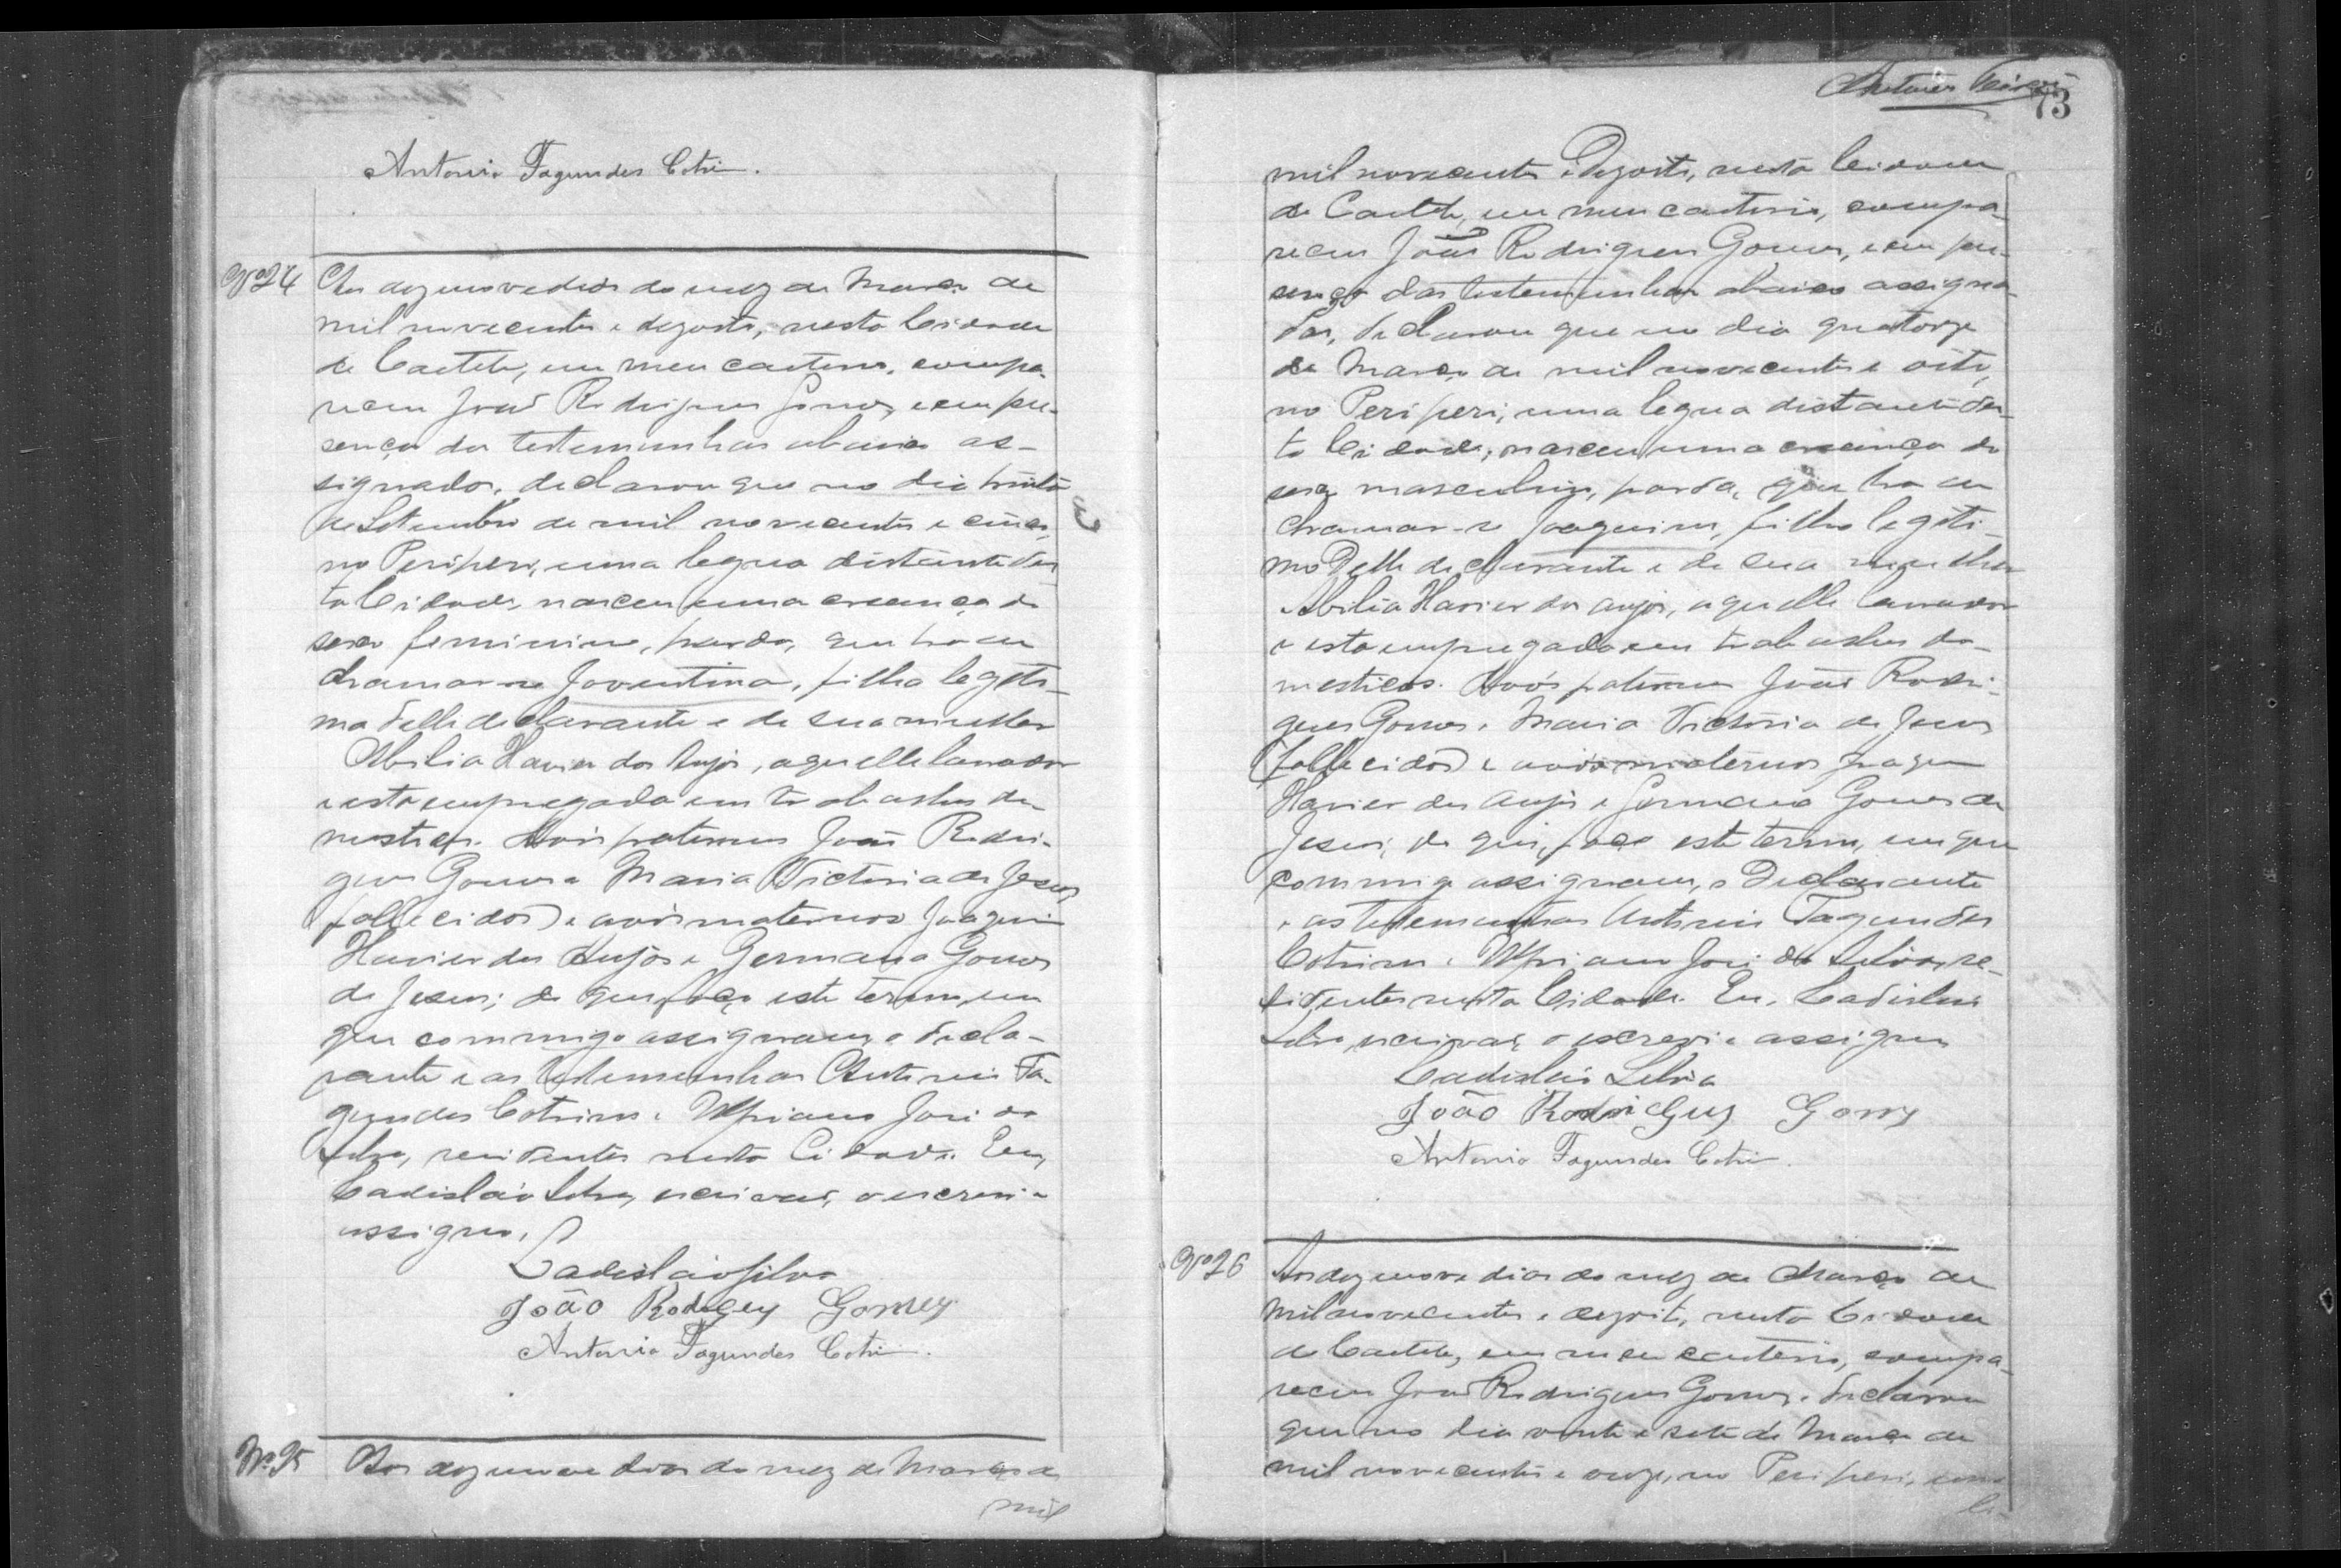 Antonio Fagundes Cotrim.
Nº 24 Aos dezenove dias do mez de Março de
mil novecentos e dezoito, nesta Cidade
de Caeteté, em meu cartorio, compa-
receu João Rodrigues Gomes, e em pre-
sença das testemunhas abaixo as-
signadas, declarou que no dia trinta
de Setembro de mil novecentos e cinco,
no Periperi, uma legua distante des-
ta Cidade, nasceu uma creança do
sexo feminino, parda, que ha de
chamar-se Joventina, filha legiti-
ma delle declarante e de sua mulher
Abilia Xavier dos Anjos, aquelle lavrador
e esta empregada em trabalhos do-
mesticos. Avós paternos João Rodri-
gues Gomes e Maria Victoria de Jesus
(fallecidos) e avós maternos Joaquim
Xavier dos Anjos e Germana Gomes
de Jesus; do que, faço este termo, em
que commigo assignam, o decla-
rante e as testemunhas Antonio Fa-
gundes Cotrim e Ulpiano José da
Silva, residentes nesta Cidade. Eu,
Ladisláo Silva, escrivão, o escrevi e
assigno.
Ladisláo Silva
João Rodrigues Gomes
Antonio Fagundes Cotrim.
Nº 25 Aos dezenove dias do mez de Março de
mil
Antonio
73
mil novecentos e dezoito, nesta Cidade
de Caeteté, em meu cartorio, compa-
receu João Rodrigues Gomes, e em pre-
sença das testemunhas abaixo assigna-
das, declarou que no dia quatorze
de Março de mil novecentos e oito,
no Periperi, uma legua distante des-
ta Cidade, nasceu uma creança do
sexo masculino, parda, que ha de
chamar-se Joaquim, filho legiti-
mo delle declarante e de sua mulher
Abilia Xavier dos Anjos, aquelle lavrador
e esta empregada em trabalhos do-
mesticos. Avós paternos João Rodri-
gues Gomes e Maria Victória de Jesus
(fallecidos) e avós maternos Joaquim
Xavier dos Anjos e Germana Gomes de
Jesus; do que, faço este termo, em que
commigo assignam, o Declarante
e as testemunhas Antonio Fagundes
Cotrim e Ulpiano José da Silva, re-
sidentes nesta Cidade. Eu, Ladisláo
Silva, escrivão, o escrevi e assigno
Ladisláo Silva
João Rodrigues Gomes
Antonio Fagundes Cotrim.
Nº 26 Aos dezenove dias do mez de Março de
mil novecentos e dezoito, nesta Cidade
de Caeteté, em meu cartorio, compa-
receu João Rodrigues Gomes e declarou
que no dia vinte e sete de Março de
mil novecentos e onze, no Periperi, uma
le-